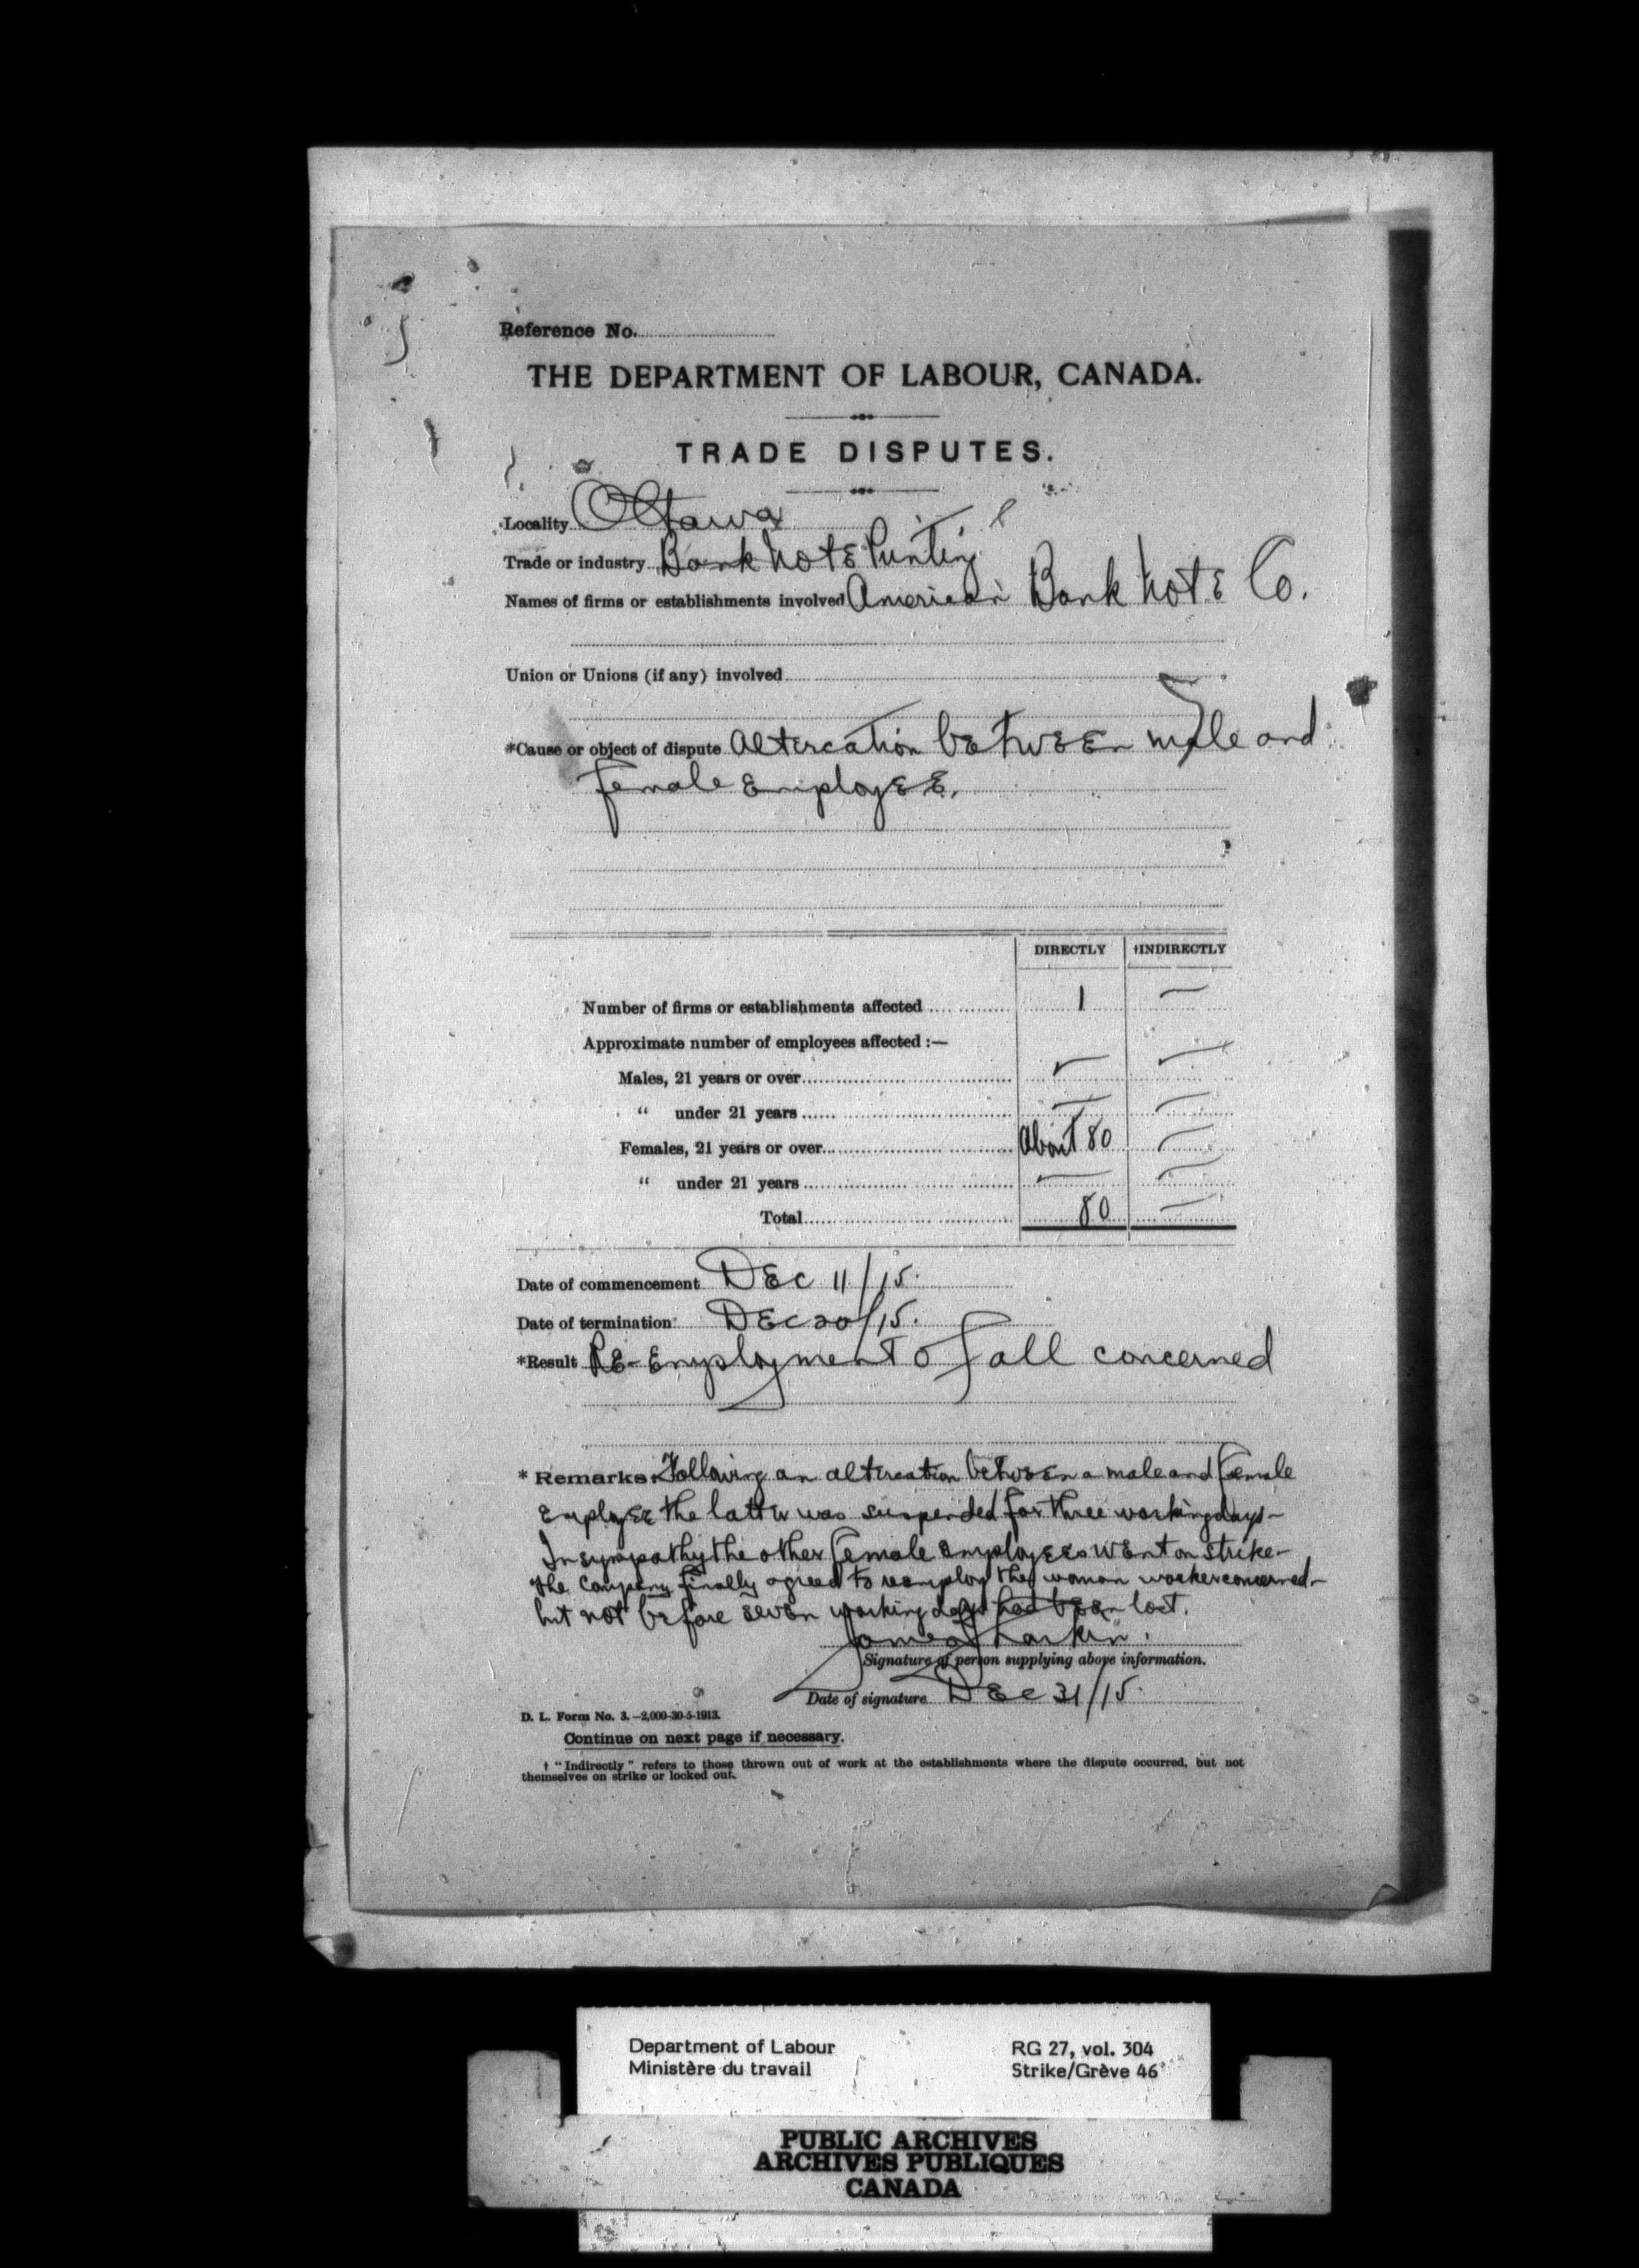 Reference No.
THE DEPARTMENT OF LABOUR, CANADA.
TRADE DISPUTES.
Locality Ottawa
Trade or industry Bank Note Printing
Names of firms or establishments involved American Bank Note Co.
Union or Unions (if any) involved
*Cause or object of dispute Altercation between male and
female employee.
DIRECTLY †INDIRECTLY
Number of firms or establishments affected 1 —
Approximate number of employees affected :—
Males, 21 years or over — —
" under 21 years — —
Females, 21 years or over About 80 —
" under 21 years — —
Total 80 —
Date of commencement Dec 11/15.
Date of termination Dec 20/15.
*Result Re-Employment of all concerned
* Remarks. Following an altercation between a male and female
employee the latter was suspended for three working days—
In sympathy the other female employees went on strike—
the Company finally agreed to reemploy the woman worker concerned—
but not before seven working days had been lost.
James Larkin.
Signature of person supplying above information.
Date of signature Dec 31/15.
D. L. Form No. 3.—2,000-30-5-1913.
Continue on next page if necessary.
† "Indirectly" refers to those thrown out of work at the establishments where the dispute occurred, but not
themselves on strike or locked out.
Department of Labour RG 27, vol. 304
Ministère du travail Strike/Grève 46
PUBLIC ARCHIVES
ARCHIVES PUBLIQUES
CANADA